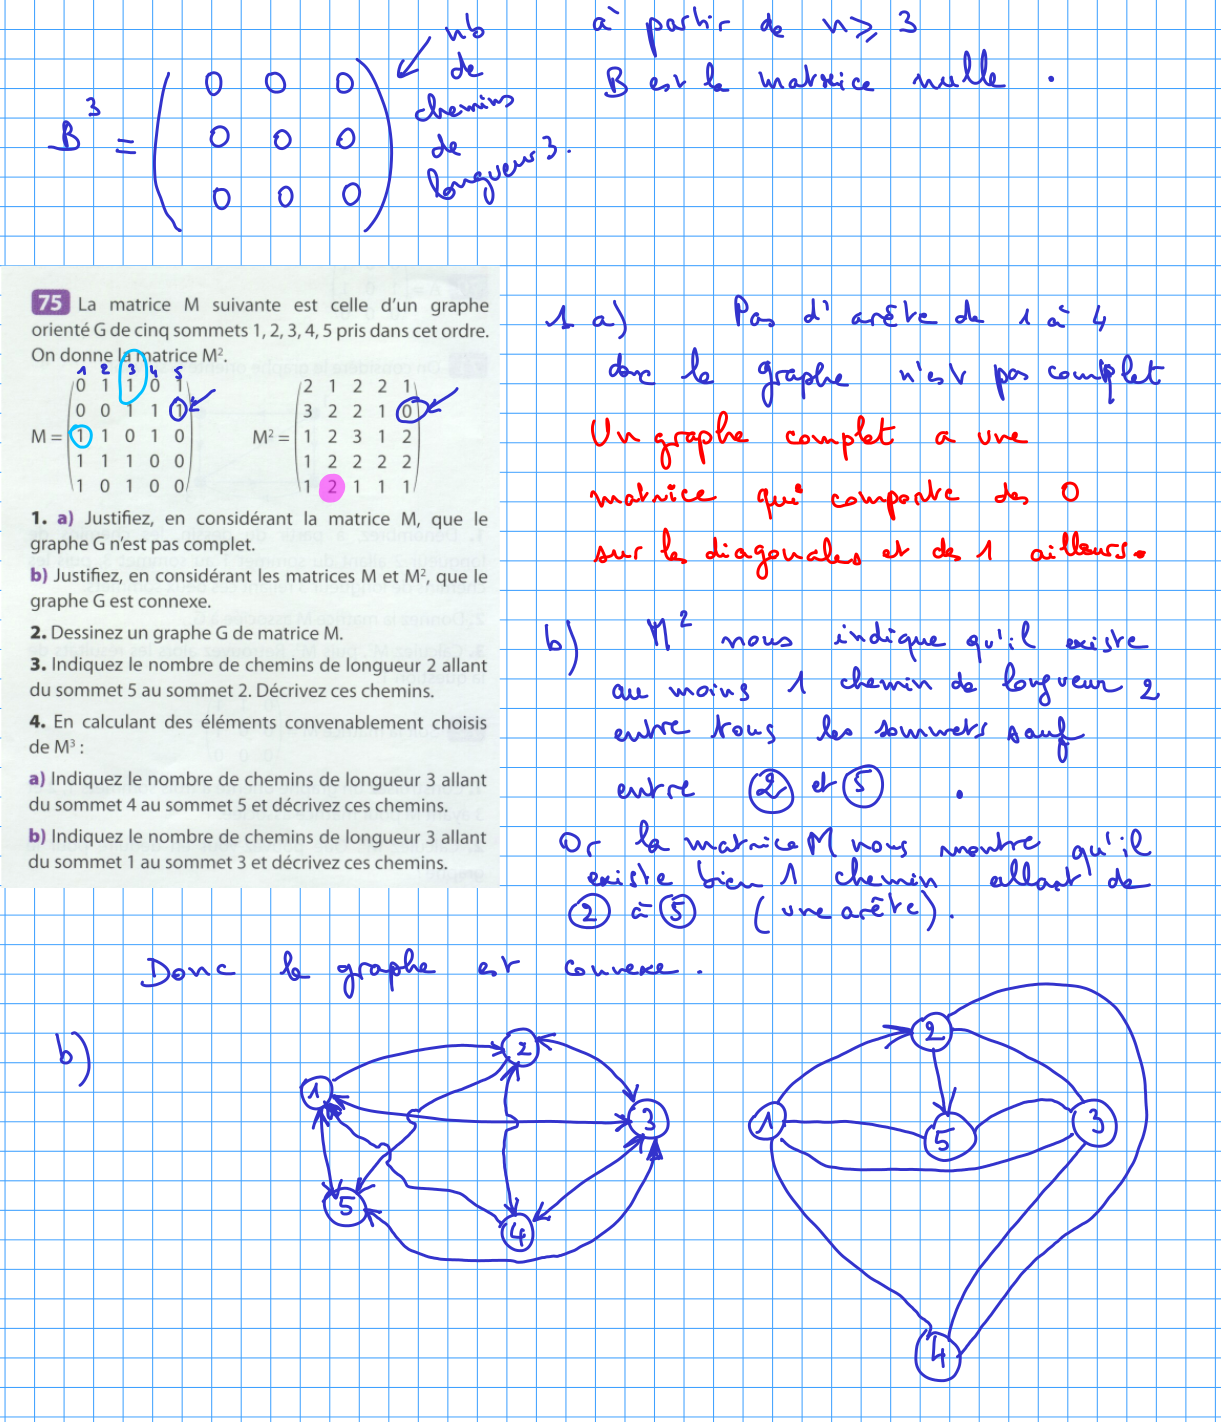 B³ = ( 0 0 0
0 0 0
0 0 0 )
nb
de
chemins
de
longueur 3.
à partir de n ⩾ 3
B est la matrice nulle.
75 La matrice M suivante est celle d'un graphe
orienté G de cinq sommets 1, 2, 3, 4, 5 pris dans cet ordre.
On donne la matrice M².
1 2 3 4 5
0 1 1 0 1
0 0 1 1 1
M = 1 1 0 1 0
1 1 1 0 0
1 0 1 0 0
2 1 2 2 1
3 2 2 1 0
M² = 1 2 3 1 2
1 2 2 2 2
1 2 1 1 1
1. a) Justifiez, en considérant la matrice M, que le
graphe G n'est pas complet.
b) Justifiez, en considérant les matrices M et M², que le
graphe G est connexe.
2. Dessinez un graphe G de matrice M.
3. Indiquez le nombre de chemins de longueur 2 allant
du sommet 5 au sommet 2. Décrivez ces chemins.
4. En calculant des éléments convenablement choisis
de M³ :
a) Indiquez le nombre de chemins de longueur 3 allant
du sommet 4 au sommet 5 et décrivez ces chemins.
b) Indiquez le nombre de chemins de longueur 3 allant
du sommet 1 au sommet 3 et décrivez ces chemins.
1 a) Pas d'arête de 1 à 4
donc le graphe n'est pas complet
Un graphe complet a une
matrice qui comporte des 0
sur les diagonales et des 1 ailleurs.
b) M² nous indique qu'il existe
au moins 1 chemin de longueur 2
entre tous les sommets sauf
entre 2 et 5 .
Or la matrice M nous montre qu'il
existe bien 1 chemin allant de
2 à 5 (une arête).
Donc le graphe est connexe.
b)
1
2
3
5
4
2
1
5
3
4